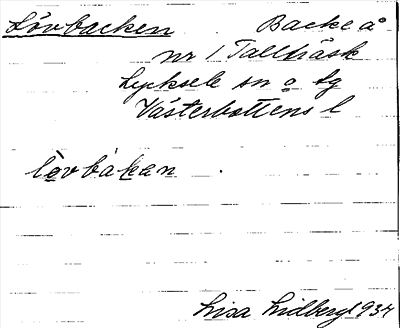 Lövbacken Backe å
nr 1 Tallträsk
Lycksele sn o lg
Västerbottens l
lövbákan
Lisa Lidberg 1934